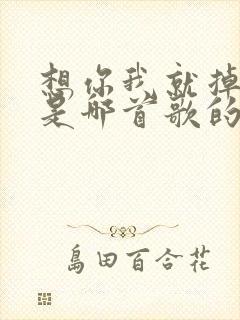 想你我就掉
是那首歌的
島田百合花